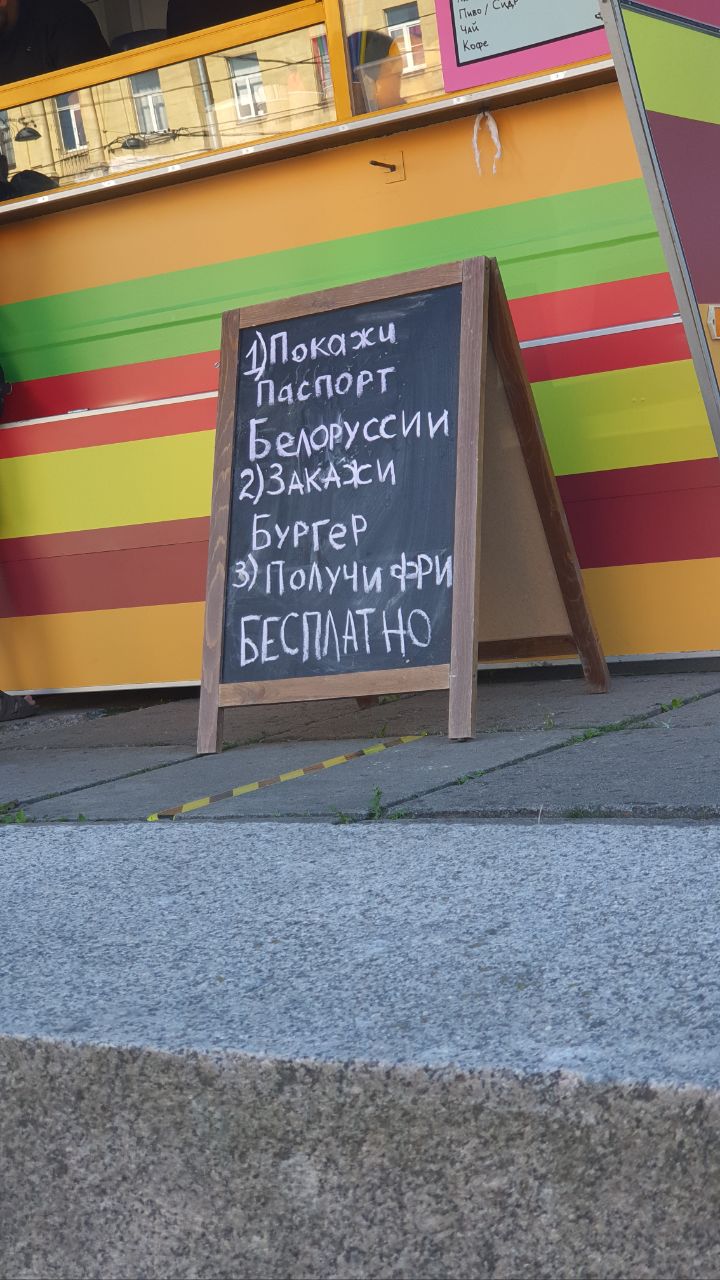 Пиво / Сидр
Чай
Кофе
1) Покажи
Паспорт
Белоруссии
2) Закажи
Бургер
3) Получи фри
БЕСПЛАТНО